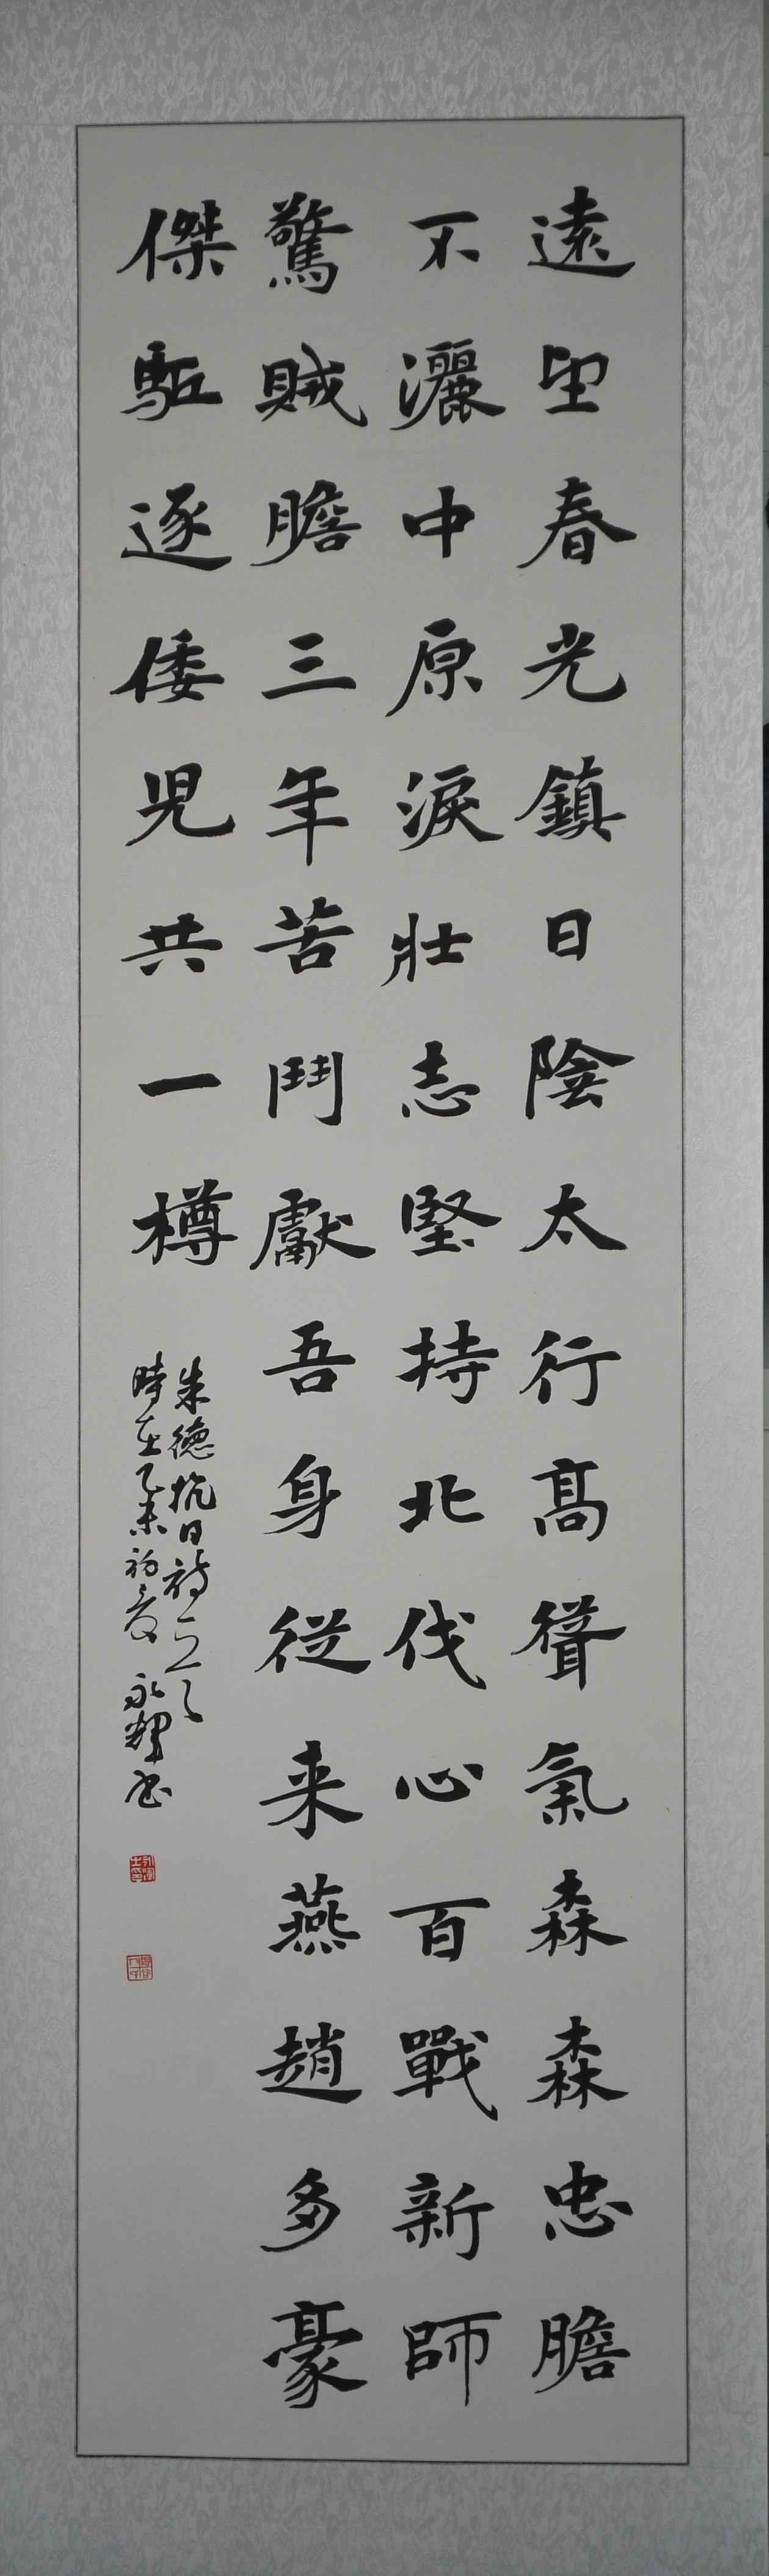 遠望春光鎮日陰太行高聳氣森森忠膽
不灑中原淚壯志堅持北伐心百戰新師
驚賊膽三年苦鬥獻吾身從来燕趙多豪
傑駈逐倭児共一樽
朱德抗日詩一首
時在乙未初夏 永輝书